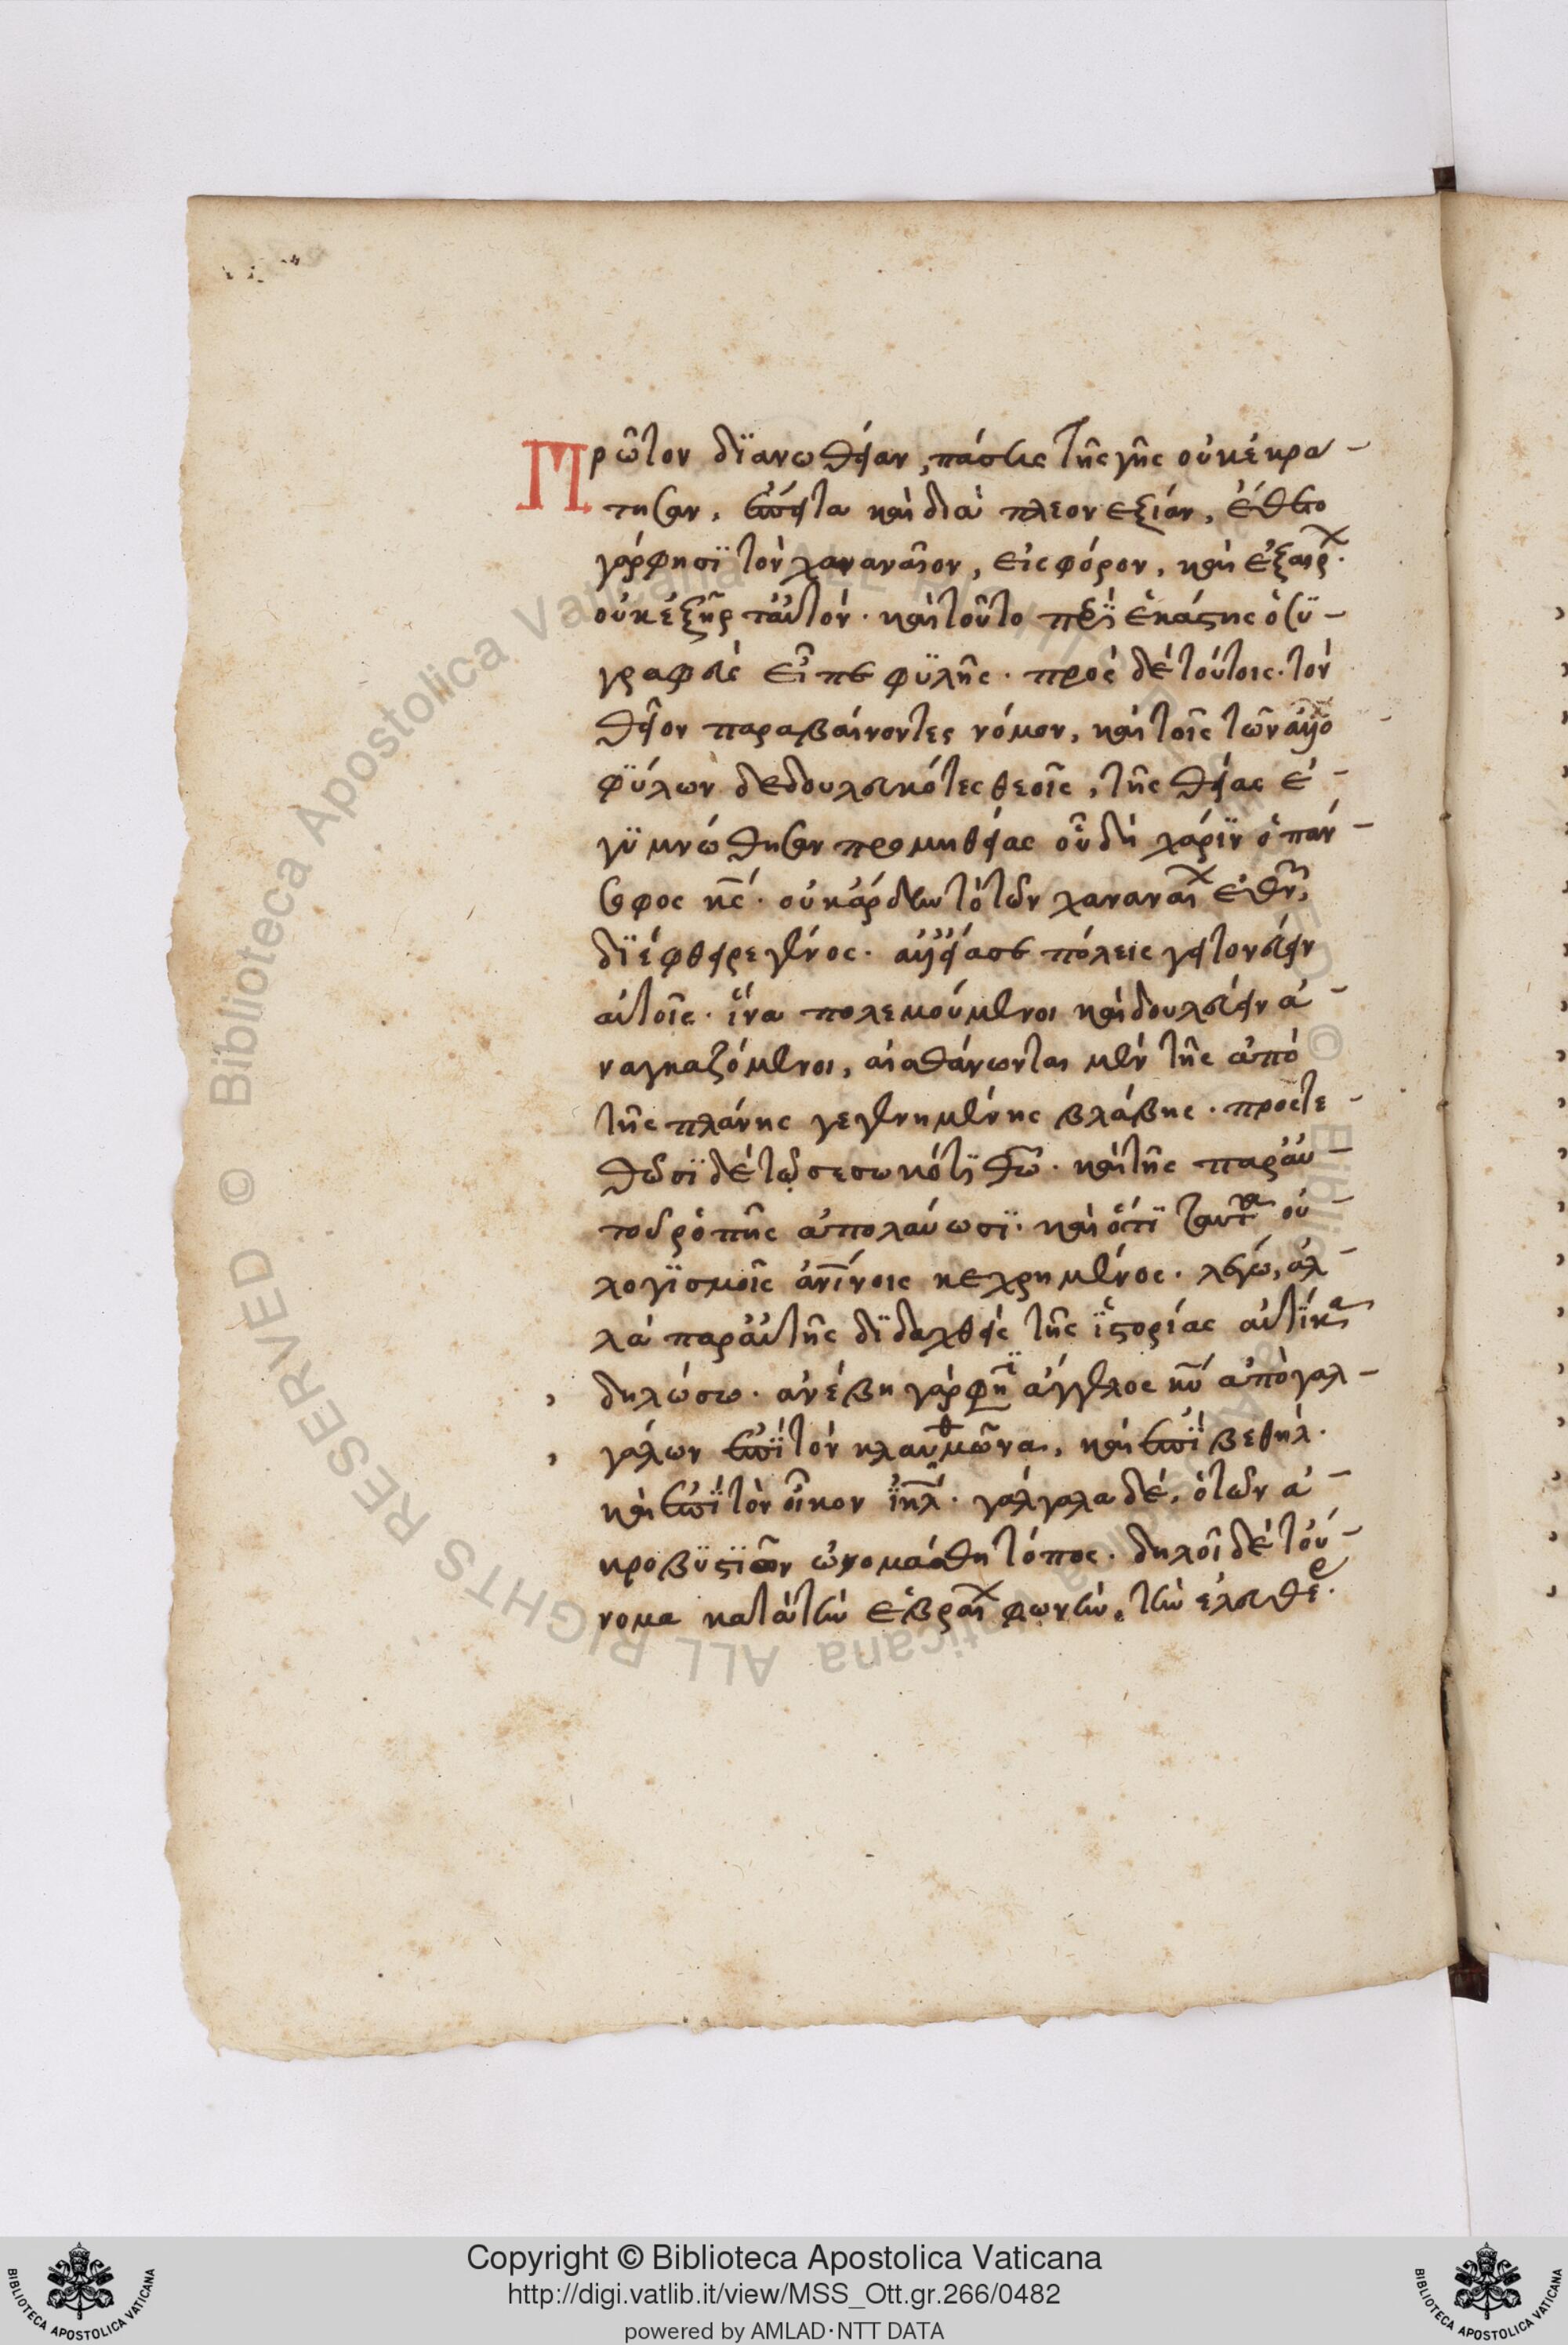 Πρῶτον δϊανωθείαν, πάσης τῆς γῆς οὐκ ἐκρα-
τησαν. ἔπειτα καὶ διὰ πλεονεξίαν, ἔθετο
γάρ φησϊ τὸν χαναναῖον, εἰς φόρον, καὶ ἐξαιρ
οὐκ ἐξῆρ ταὐτόν. καὶ τοῦτο περϊ ἑκάστης ὁ συ-
γραφεὺς εἶπε φϋλῆς. πρὸς δὲ τούτοις. τὸν
θεῖον παραβαίνοντες νόμον, καὶ τοῖς τῶν ἀλλο
φϋλων δεδουλευκότες θεοῖς, τῆς θείας ἐ-
γϋμνώθησαν προμηθείας οὗ δὴ χάρϊν ὁ παν-
σοφος κς. οὐκ ἄρδην τὸ τῶν χαναναι ἔθν,
δϊέφθειρε γένος. ἀλλ' εἴασε πόλεις γειτονεύειν
αὐτοῖς. ἵνα πολεμούμενοι καὶ δουλεύειν ἀ-
ναγκαζόμενοι, αἰσθάνωνται μὲν τῆς ἀπὸ
τῆς πλάνης γεγενημένης βλάβης. προστε-
θῶσϊ δὲ τῷ σεσωκότϊ θω. καὶ τῆς παρ' αὐ-
τοῦ ῥοπῆς ἀπολαύωσϊ. καὶ ὅτϊ ταῦτα οὐ-
λογϊσμοῖς ἀνίνοις κεχρημένος. λέγω, ἀλ-
λὰ παρ' αὐτῆς δϊδαχθεὶς τῆς ἱστορίας αὐτίκα
δηλώσω. ἀνέβη γάρ φη ἄγγελος κυ ἀπὸ γαλ-
γάλων ἐπϊ τὸν κλαυθμῶνα, καὶ ἐπϊ βεθηλ.
καὶ ἐπϊ τὸν οἶκον ιηλ. γάλγαλα δὲ, ὁ τῶν ἀ-
κροβϋστϊῶν ὠνομάσθη τόπος. δηλοῖ δὲ τοὔ-
νομα κατὰ τὴν ἑβραι φωνὴν, τὴν ἐλευθε.
Copyright © Biblioteca Apostolica Vaticana
http://digi.vatlib.it/view/MSS_Ott.gr.266/0482
powered by AMLAD·NTT DATA
BIBLIOTECA APOSTOLICA VATICANA
BIBLIOTECA APOSTOLICA VATICANA